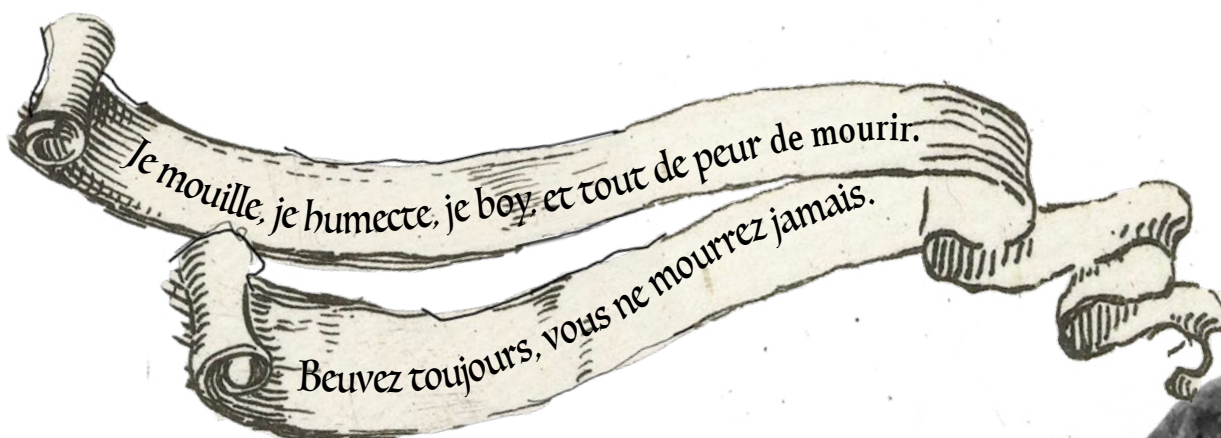 Je mouille, je humecte, je boy, et tout de peur de mourir.
Beuvez toujours, vous ne mourrez jamais.